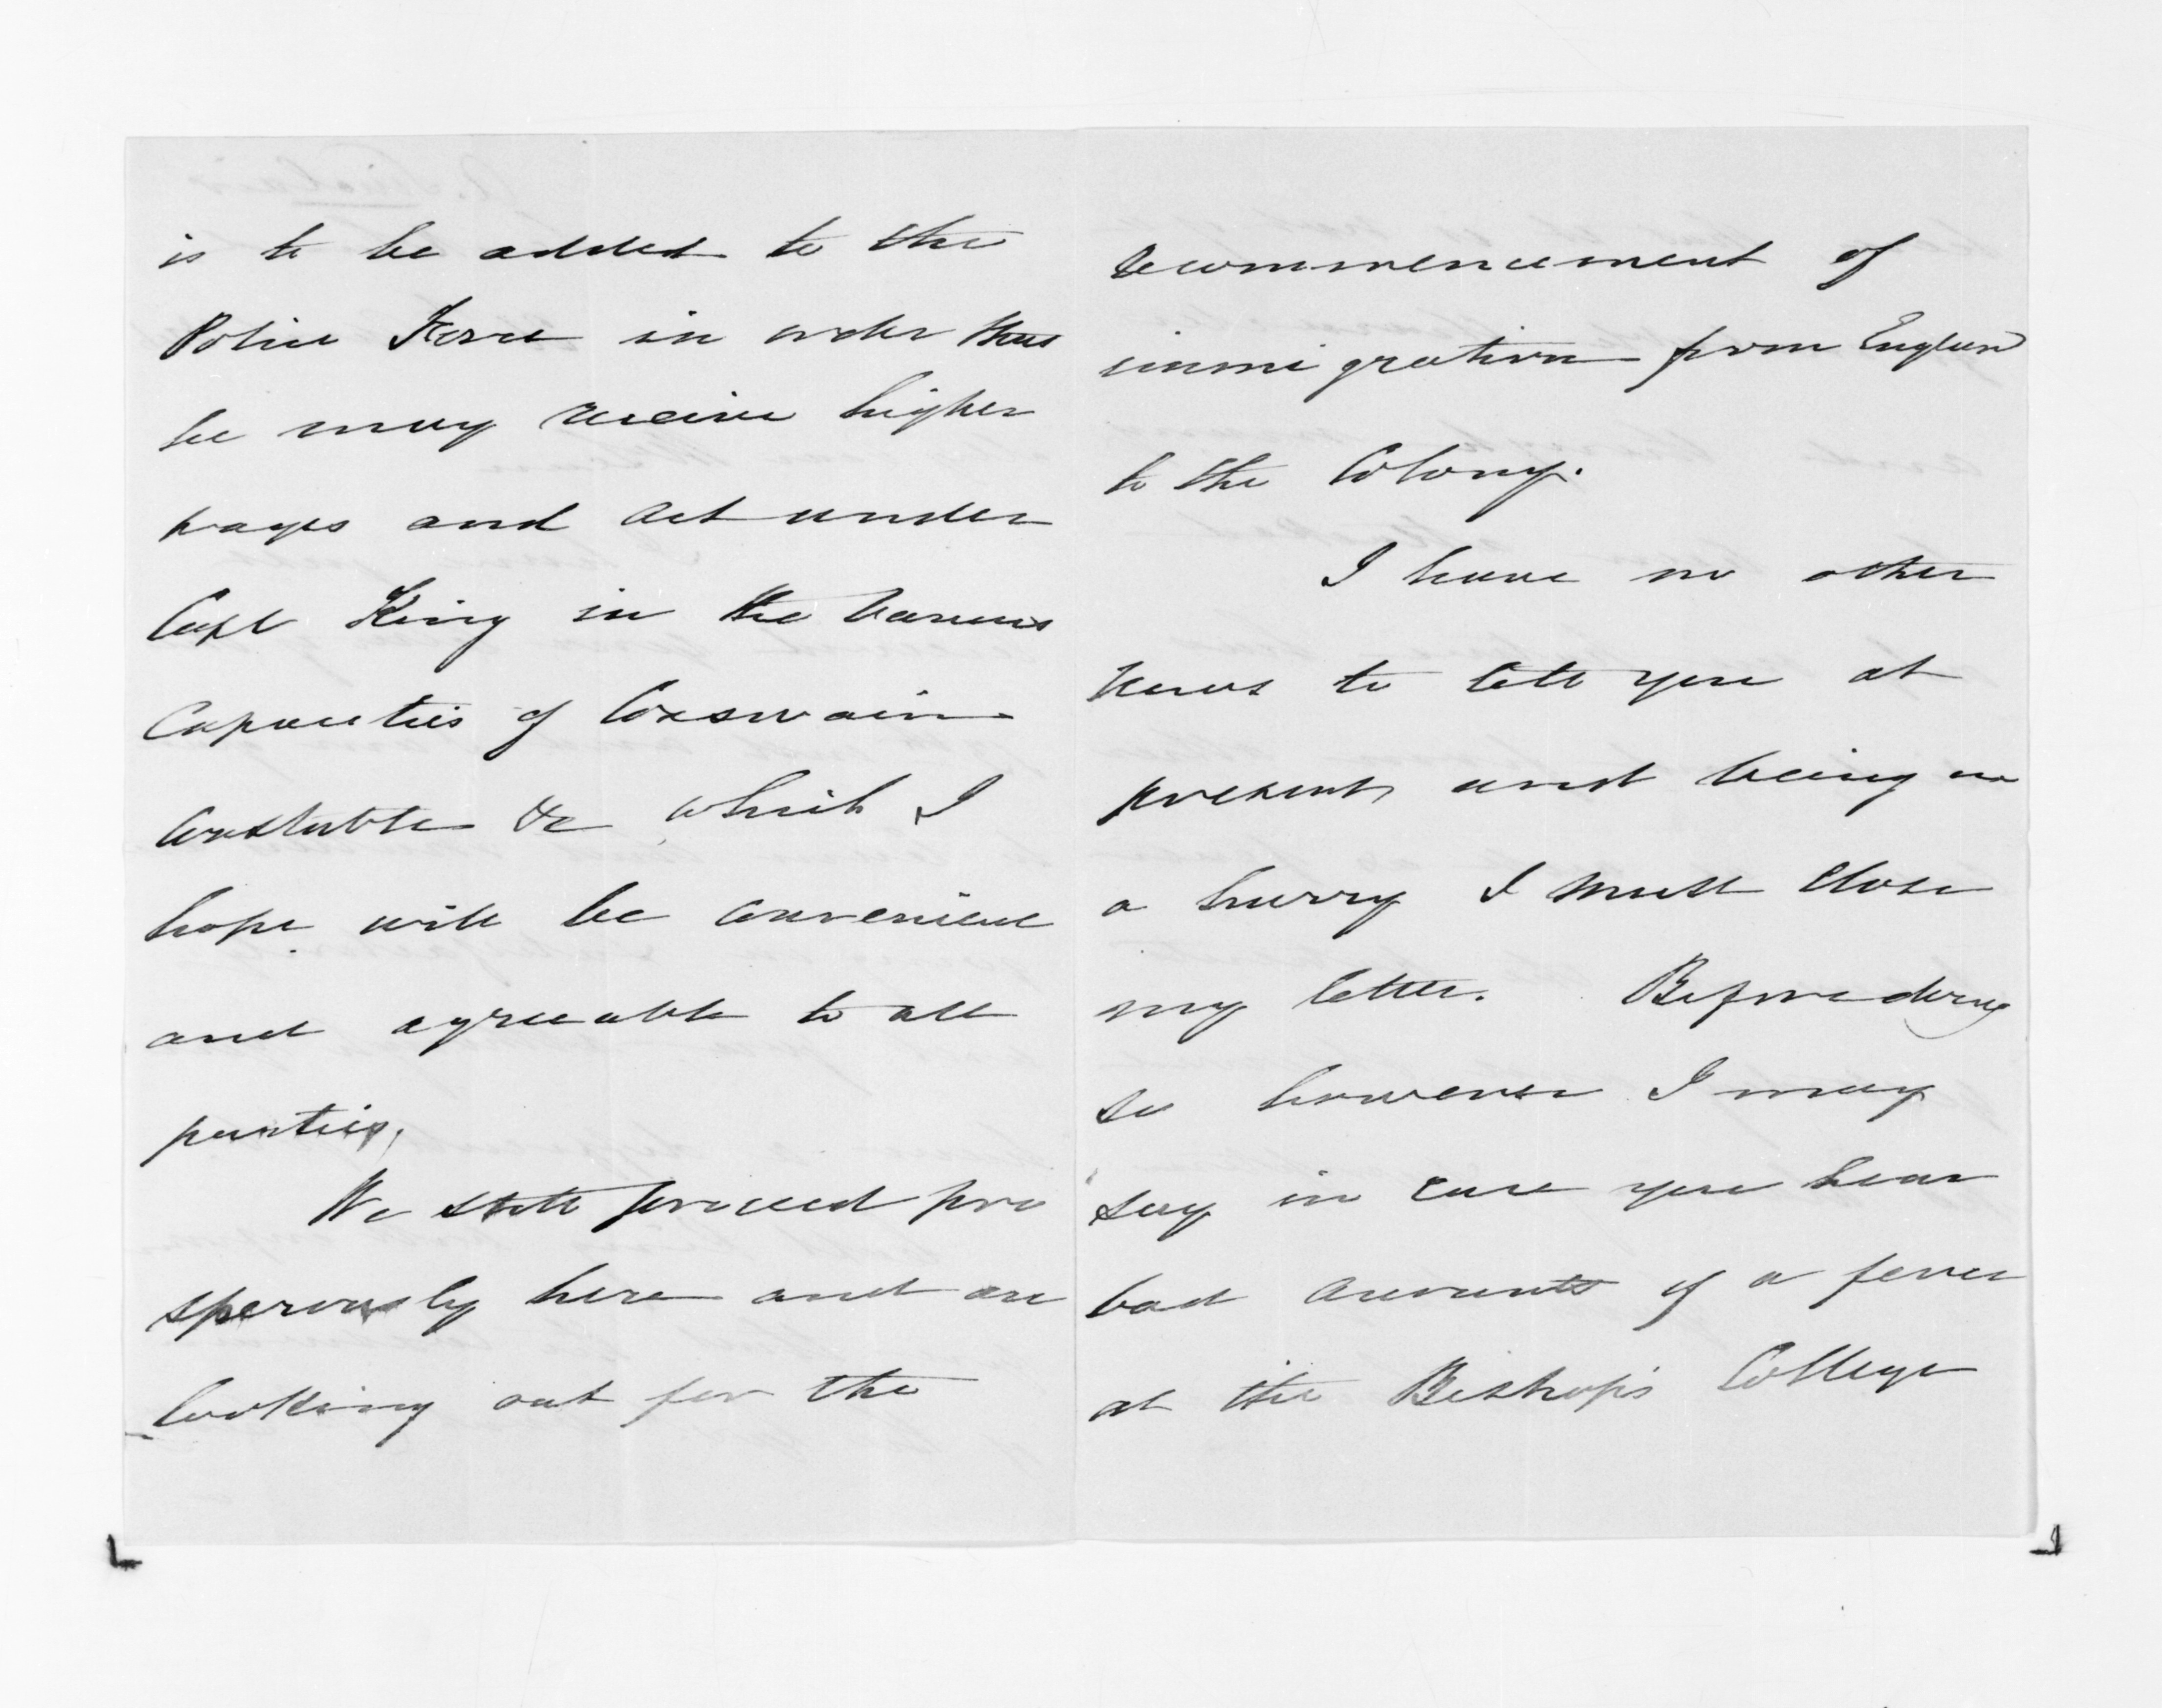 is to be added to the
Police Force in order that
he may receive higher
wages and act under
Capt King in the various
Capacities of Coxswain
Constable &c which I
hope will be convenient
and agreeable to all
parties.
We still proceed pro
sperously here and are
looking out for the
recommencement of
immigration from England
to the Colony.
I have no other
news to tell you at
present, and being in
a hurry I must close
my letter. Before doing
so however I may
say in case you hear
bad accounts of a fever
at the Bishop's College